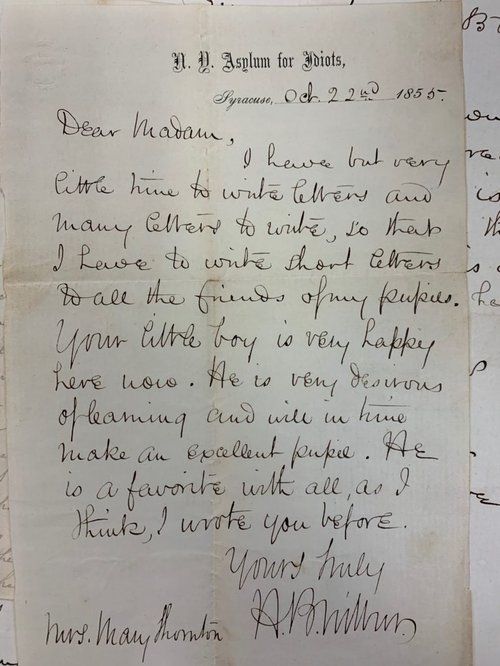 N. Y. Asylum for Idiots,
Syracuse, Oct. 22nd 1855.
Dear Madam,
I have but very
little time to write letters and
many letters to write, so that
I have to write short letters
to all the friends of my pupils.
Your little boy is very happy
here now. He is very desirous
of learning and will in time
make an excellent pupil. He
is a favorite with all, as I
think, I wrote you before.
Yours truly
H. B. Wilbur.
Mrs. Mary Thornton